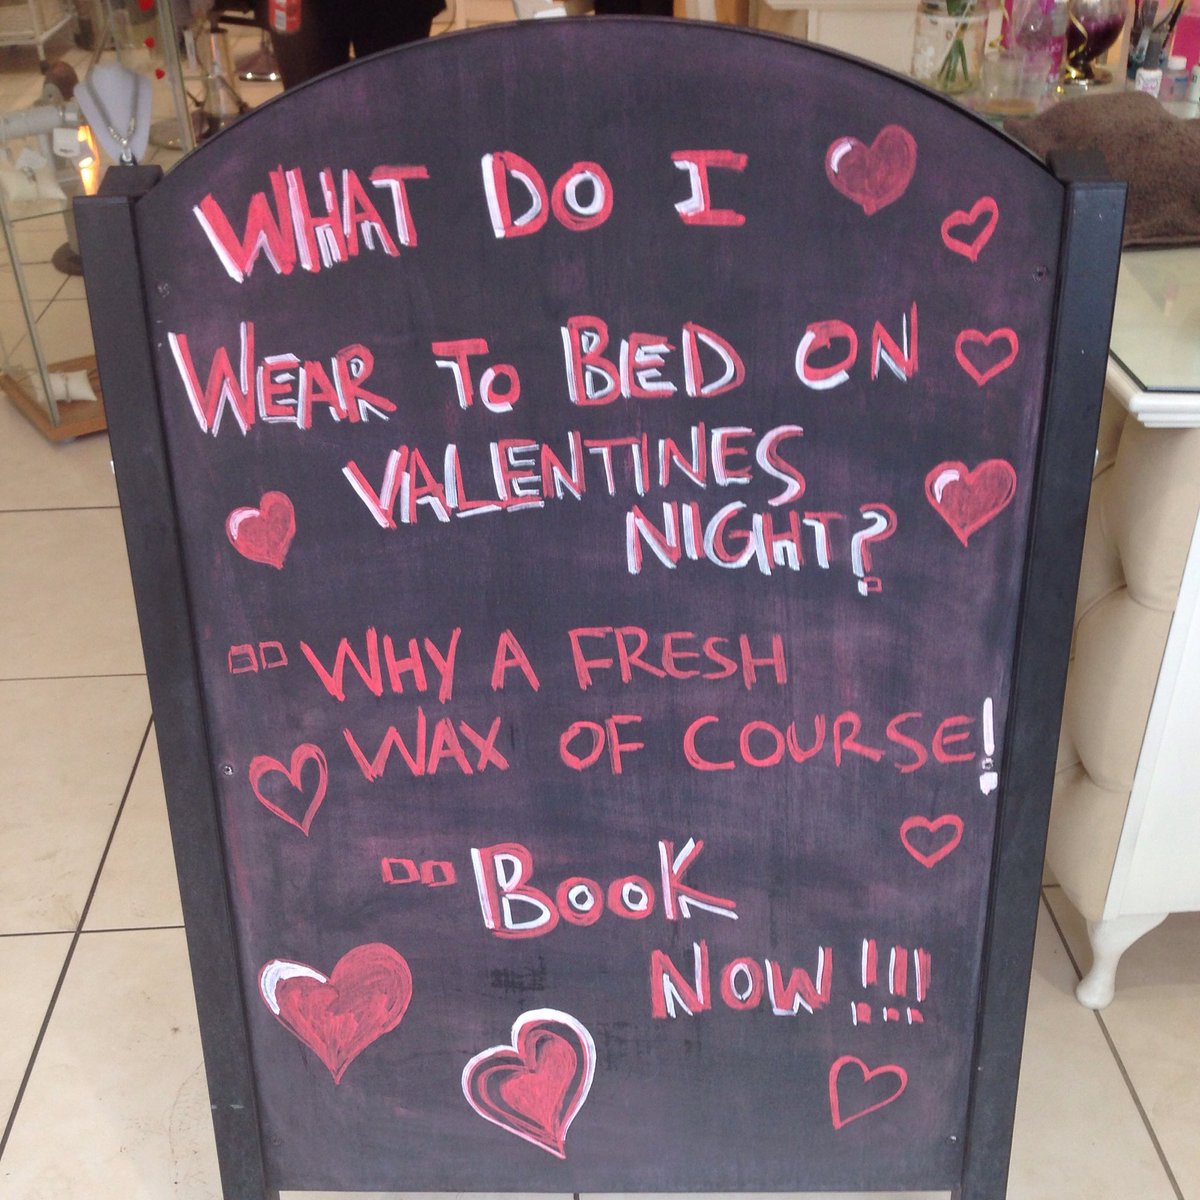 WHAT DO I
WEAR TO BED ON
VALENTINES
NIGHT?
WHY A FRESH
WAX OF COURSE!
BOOK
NOW!!!